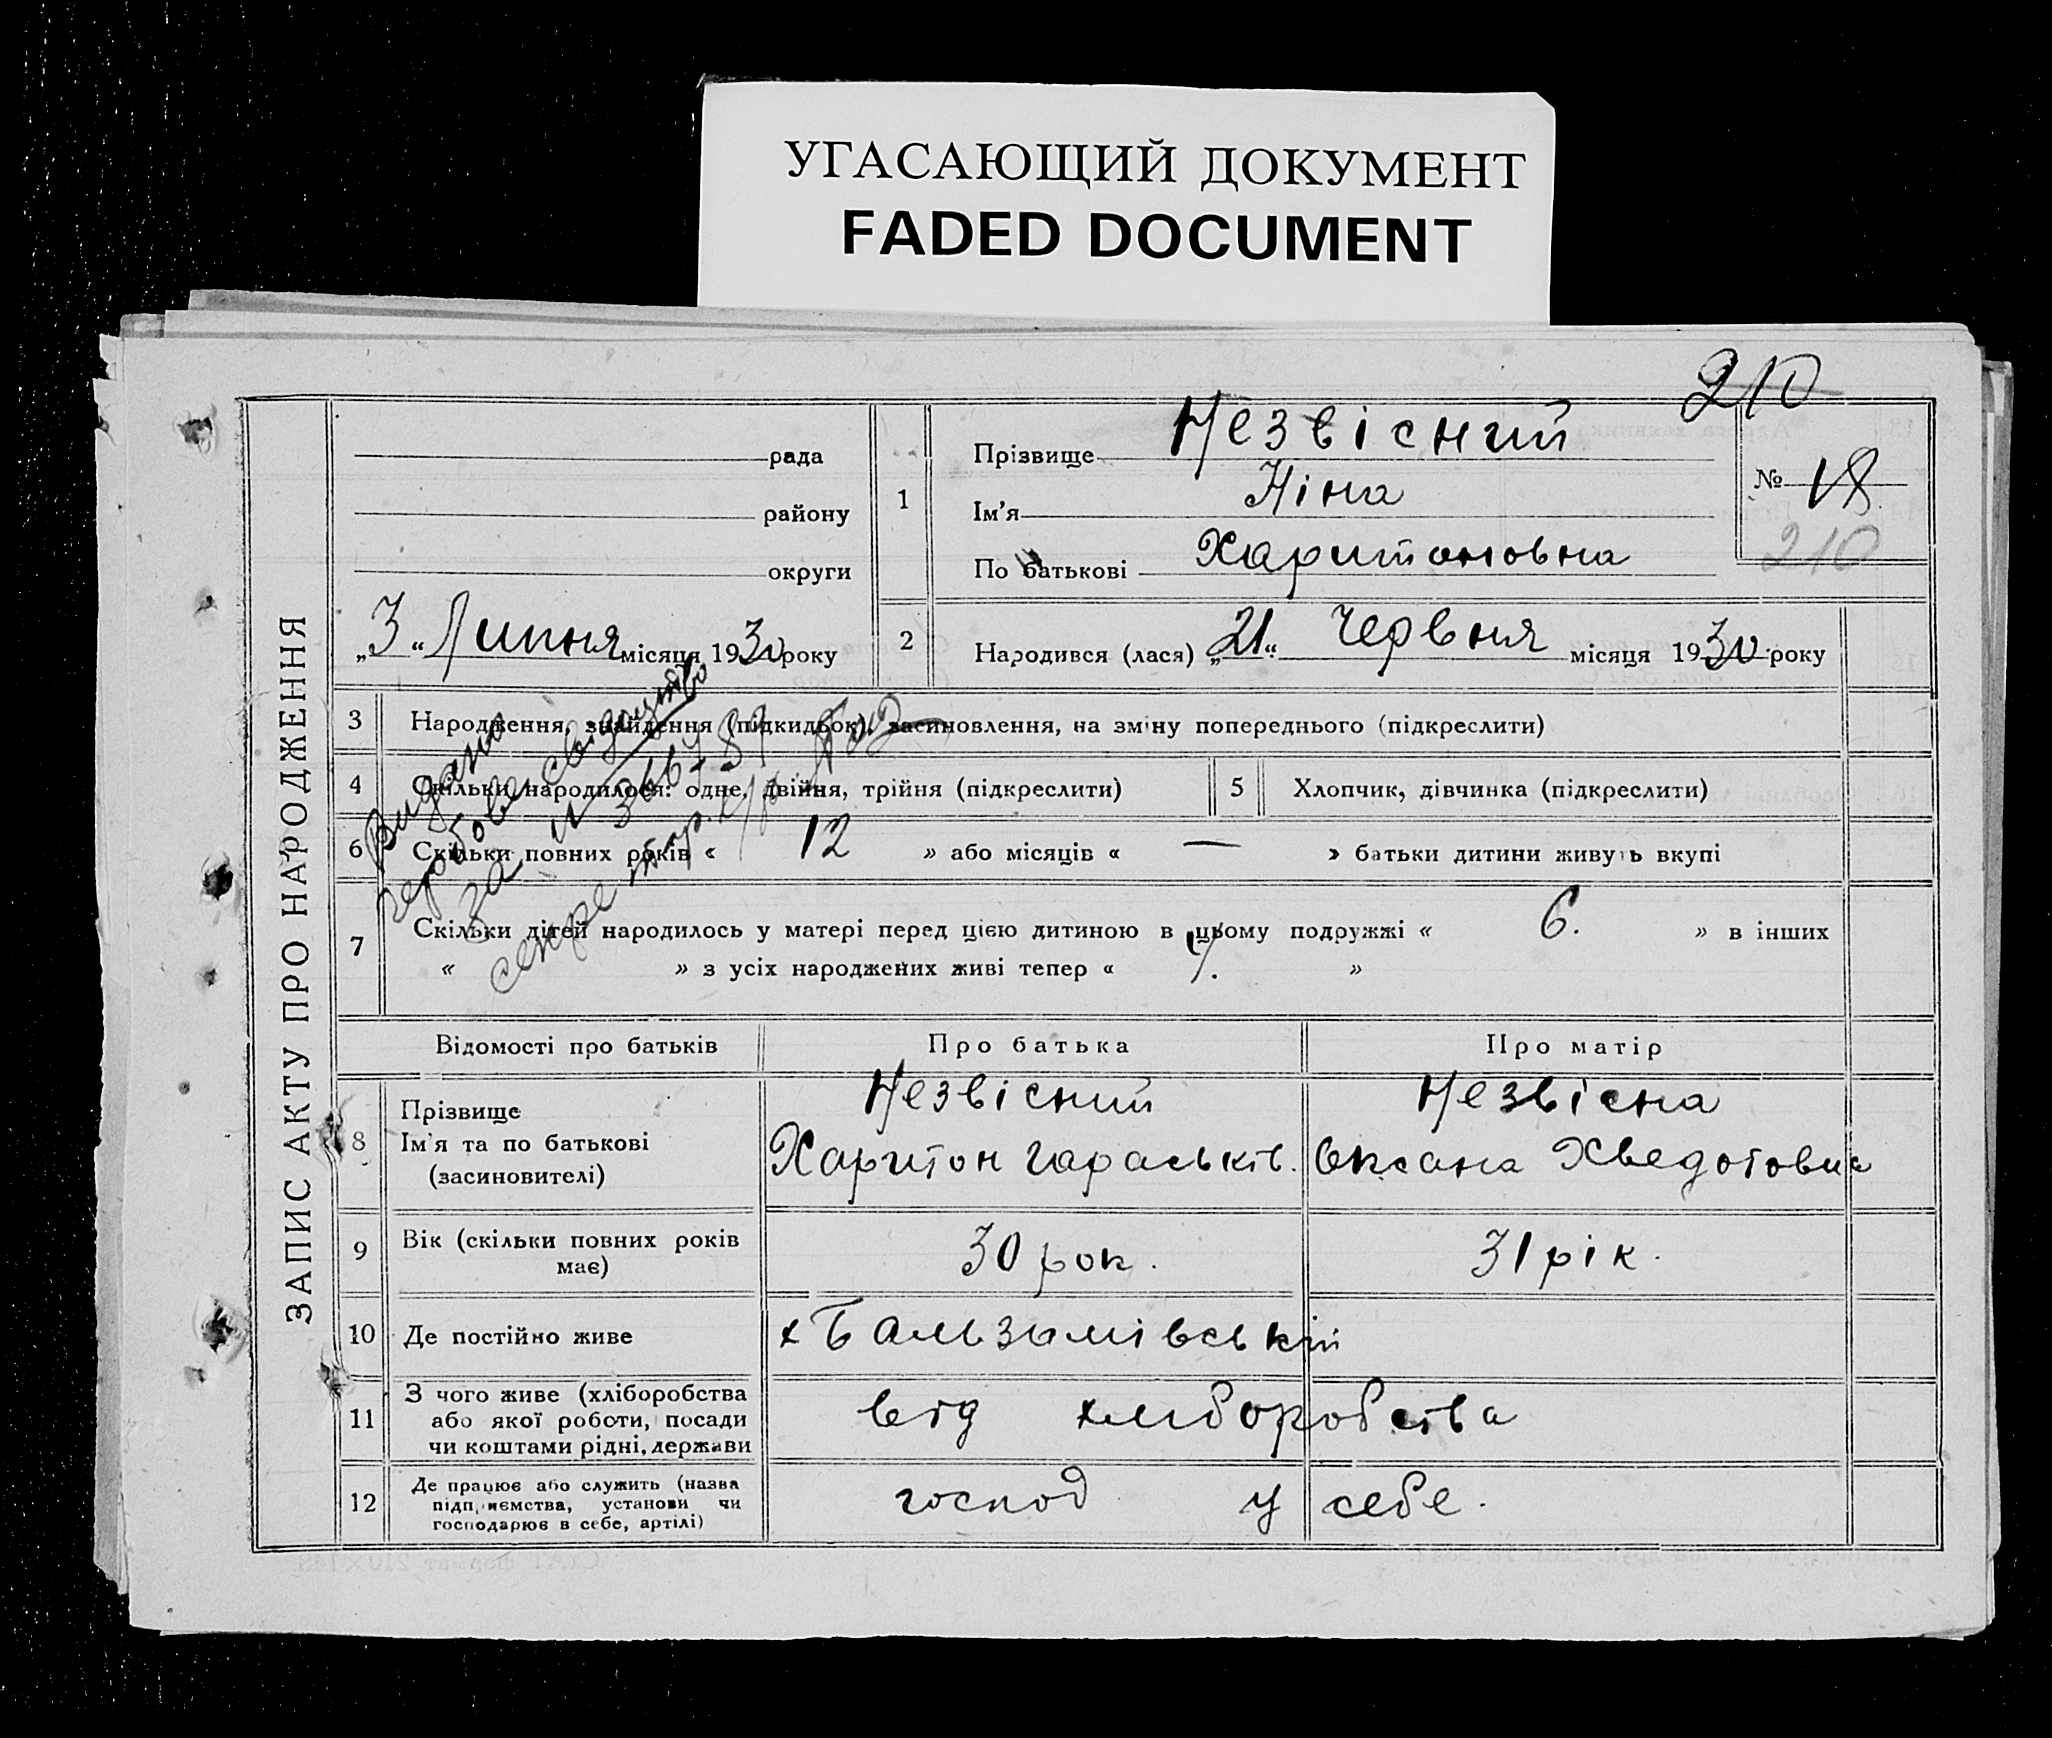 УГАСАЮЩИЙ ДОКУМЕНТ
FADED DOCUMENT
210
ЗАПИС АКТУ ПРО НАРОДЖЕННЯ
рада
району
округи
„3“ Липня місяця 1930 року
1
Прізвище Незвісний
Ім'я Ніна
По батькові Харитоновна
№ 18
210
2 Народився (лася) „21“ Червня місяця 1930 року
3 Народження, знайдення (підкидьок), засиновлення, на зміну попереднього (підкреслити)
4 Скільки народилося: одне, двійня, трійня (підкреслити) 5 Хлопчик, дівчинка (підкреслити)
6 Скільки повних років « 12 » або місяців « — » батьки дитини живуть вкупі
7 Скільки дітей народилось у матері перед цією дитиною в цьому подружжі « 6. » в інших
« » з усіх народжених живі тепер « 4. »
Видано
свідоцтво
за №
Відомості про батьків Про батька Про матір
8 Прізвище Незвісний Незвісна
Ім'я та по батькові Харитон Гараськів. Оксана Хведотовна
(засиновителі)
9 Вік (скільки повних років має) 30 рок. 31 рік.
10 Де постійно живе х Бальзамівський
11 З чого живе (хліборобства
або якої роботи, посади
чи коштами рідні, держави
від хліборобства
12 Де працює або служить (назва
підприємства, установи чи
господарює в себе, артілі)
господ у себе.